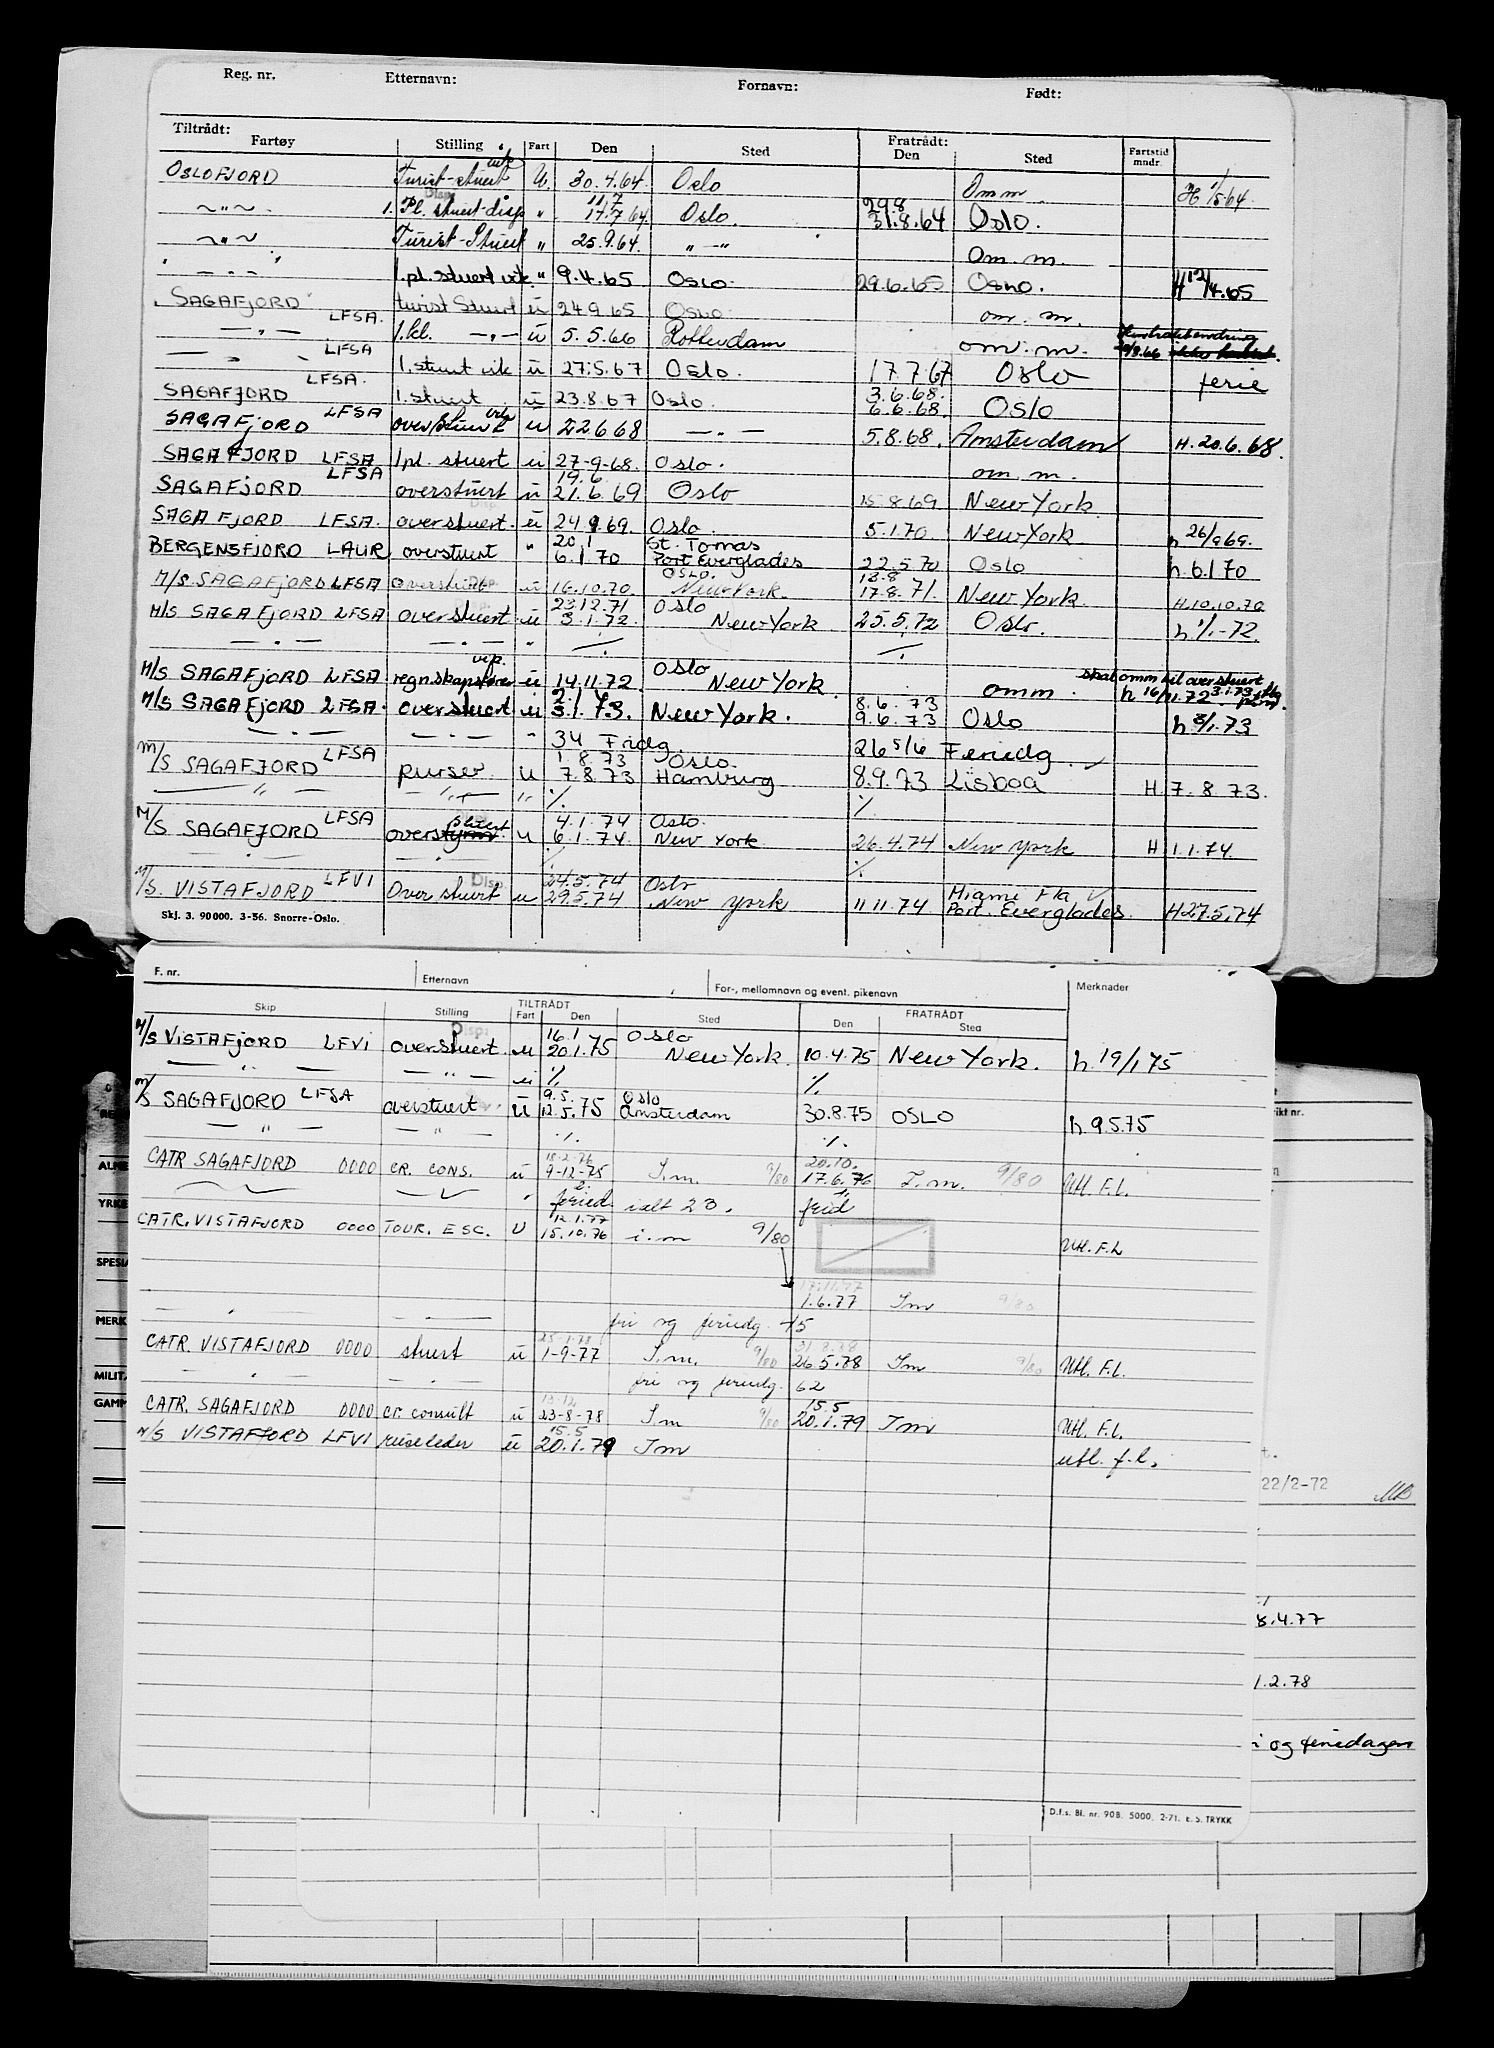 Reg. nr. Etternavn: Fornavn: Født:
Tiltrådt: Fratrådt:
Fartøy Stilling Fart Den Sted Den Sted Fartstid mndr.
OSLOFJORD Turist-stuert vik U. 30.4.64. Oslo Omm H 1/5 64.
~"~ 1. Pl. stuert-disp " 11.7 17.7.64. Oslo. 29.8 31.8.64 Oslo.
~"~ Turist-Stuert " 25.9.64. "—" Om. m.
— . — 1.pl. stuert vik " 9.4.65 Oslo. 29.6.65 Oslo. H 12/4.65
SAGAFJORD turist Stuert ü 24.9.65 Oslo. om. m.
— " — LFSA. 1.kl. — " — ü 5.5.66 Rotterdam om. m.
— " — LFSA 1. stuert vik ü 27.5.67 Oslo. 17.7.67 Oslo ferie
SAGAFJORD LFSA. 1. stuert ü 23.8.67 Oslo. 3.6.68. 6.6.68. Oslo
SAGAFJORD LFSA overstuert vik ü 22668 — . — 5.8.68. Amsterdam H. 20.6.68.
SAGAFJORD LFSA 1pl. stuert ü 27-9-68. Oslo. om. m.
SAGAFJORD LFSA overstuert ü 19.6 21.6.69 Oslo 15.8.69 New York
SAGAFJORD LFSA. overstuert. ü 24.9.69. Oslo. 5.1.70 New York h 26/9 69.
BERGENSFJORD LAUR overstuert " 20.1 6.1.70 St. Tomas Port Everglades 22.5.70 Oslo h. 6.1.70
M/S. SAGAFJORD LFSA overstuert Disp. ü 16.10.70. OSLO. New York. 12.8 17.8.71. New York. H.10.10.70
M/S SAGAFJORD LFSA overstuert ü 23.12.71 3.1.72. Oslo New York 25.5.72 Oslo. h 1/1-72.
— " — — " — ./. ./.
M/S SAGAFJORD LFSA regnskapsfører vik. ü 14.11.72. Oslo New York omm. skal omm til overstuert 3.1.73 h 16/11.72.
M/S SAGAFJORD LFSA. overstuert ü 2. 3.1.73. New York. 8.6.73 9.6.73 Oslo h. 3/1.73
— " — — " — " 34 Fridg. 26 5/6 Feriedg.
M/S SAGAFJORD LFSA purser u 1.8.73 7.8.73 Oslo. Hamburg 8.9.73 Lisboa H. 7.8 73.
— " — — " — " ./. ./.
M/S SAGAFJORD LFSA overstuert u 4.1.74 6.1.74. Oslo. New York 26.4.74 New York H 1.1.74.
— " — — " — ./. ./.
M/S. VISTAFJORD LFVI Over stuert Disp. u 24.5.74 29.5.74 Oslo New York 11 11.74 Miami Fla Port. Everglades. H 27.5.74
Skj. 3. 90000. 3-56. Snorre-Oslo.
F. nr. Etternavn For-, mellomnavn og event. pikenavn Merknader
TILTRÅDT FRATRÅDT
Skip Stilling Fart Den Sted Den Sted
M/S VISTAFJORD LFVI overstuert Disp. u 16.1 20.1.75 Oslo New York. 10.4.75 New York. h. 19/1 75
— " — — " — u ./. ./.
M/S SAGAFJORD LFSA overstuert ü 9.5. 12.5.75 Oslo Amsterdam 30.8.75 OSLO h.9.5.75
— " — — " — ./. ./.
CATR SAGAFJORD 0000 CR. CONS. ü 18-2-76 9-12-75 I.m. 9/80 20.10. 17.6.76 I.m. 9/80 Utl. F.L.
" feried. ialt 23. frid
CATR. VISTAFJORD 0000 TOUR. ESC. U 12.1.77 15.10.76 i.m 9/80 Utl. F.L
17.11.77 1.6.77 Im 9/80
— " — — — fri og feriedg. 75
CATR. VISTAFJORD 0000 stuert ü 25-1-78 1-9-77 I.m. 9/80 31.8.78 26.5.78 Im 9/80 Utl. F.L.
— " — — " — fri og feriedg. 62
CATR. SAGAFJORD 0000 cr. consult ü 13.12 23-8-78 Im 9/80 15.5 20.1.79 Im Utl. F.L.
M/S VISTAFJORD LFVI reiseleder ü 15.5 20.1.79 Im utl. f.l.
D.f.s. Bl. nr. 90B. 5000. 2-71. E. S. TRYKK
ALME
YRKE
SPESIA
MERK
MILITÆ
GAMM
rikt nr.
22/2-72
8.4.77
1.2.78
i og feriedagen